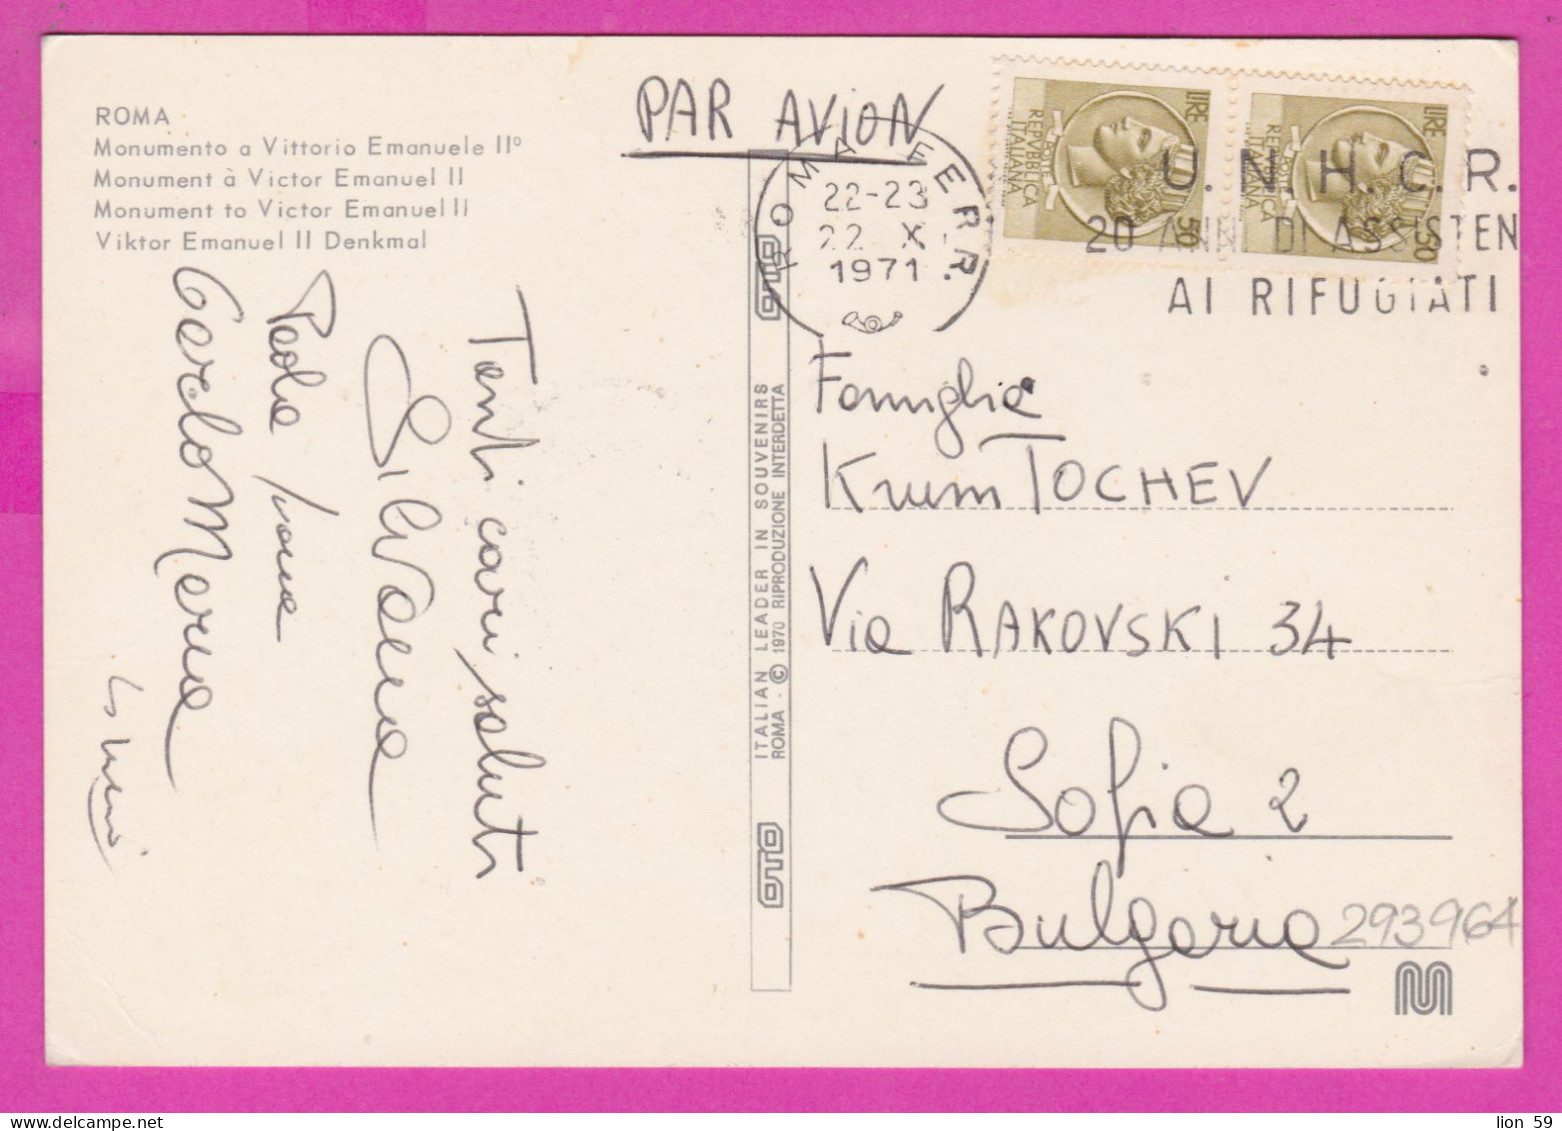 ROMA
Monumento a Vittorio Emanuele IIº
Monument à Victor Emanuel II
Monument to Victor Emanuel II
Viktor Emanuel II Denkmal
PAR AVION
ROMA FERR.
22-23
22 X
1971
LIRE
REPVBBLICA
ITALIANA
POSTE
50
LIRE
REPVBBLICA
ITALIANA
POSTE
50
U.N.H.C.R.
20 ANNI DI ASSISTEN
AI RIFUGIATI
Tanti cari saluti
Silvana
Paola
OTO
ITALIAN LEADER IN SOUVENIRS
ROMA - © 1970 RIPRODUZIONE INTERDETTA
OTO
Famiglia
Krum TOCHEV
Via RAKOVSKI 34
Sofia 2
Bulgaria
293964
lion 59